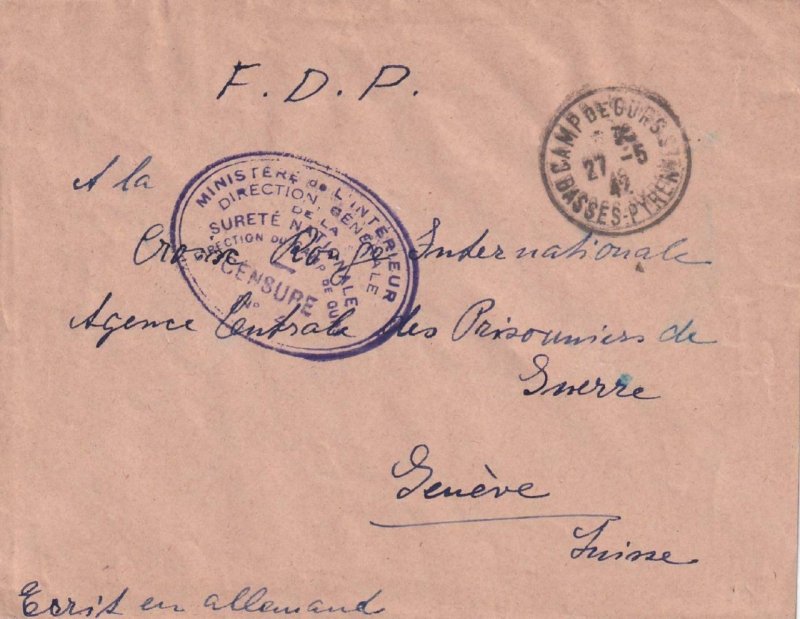 F. D. P.
CAMP DE GURS
BASSES-PYRENN
27
42
MINISTÈRE de L'INTÉRIEUR
DIRECTION GÉNÉRALE
DE LA
SURETÉ NATIONALE
DIRECTION DU CAMP DE GURS
CENSURE
No
A la
Croix Rouge Internationale
Agence Centrale des Prisonniers de
Guerre
Genève
Suisse
Ecrit en allemand